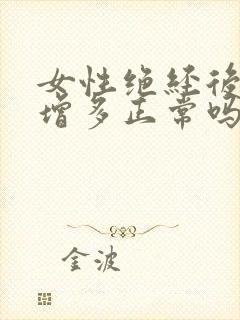 女性绝经後
增多正常吗
金波